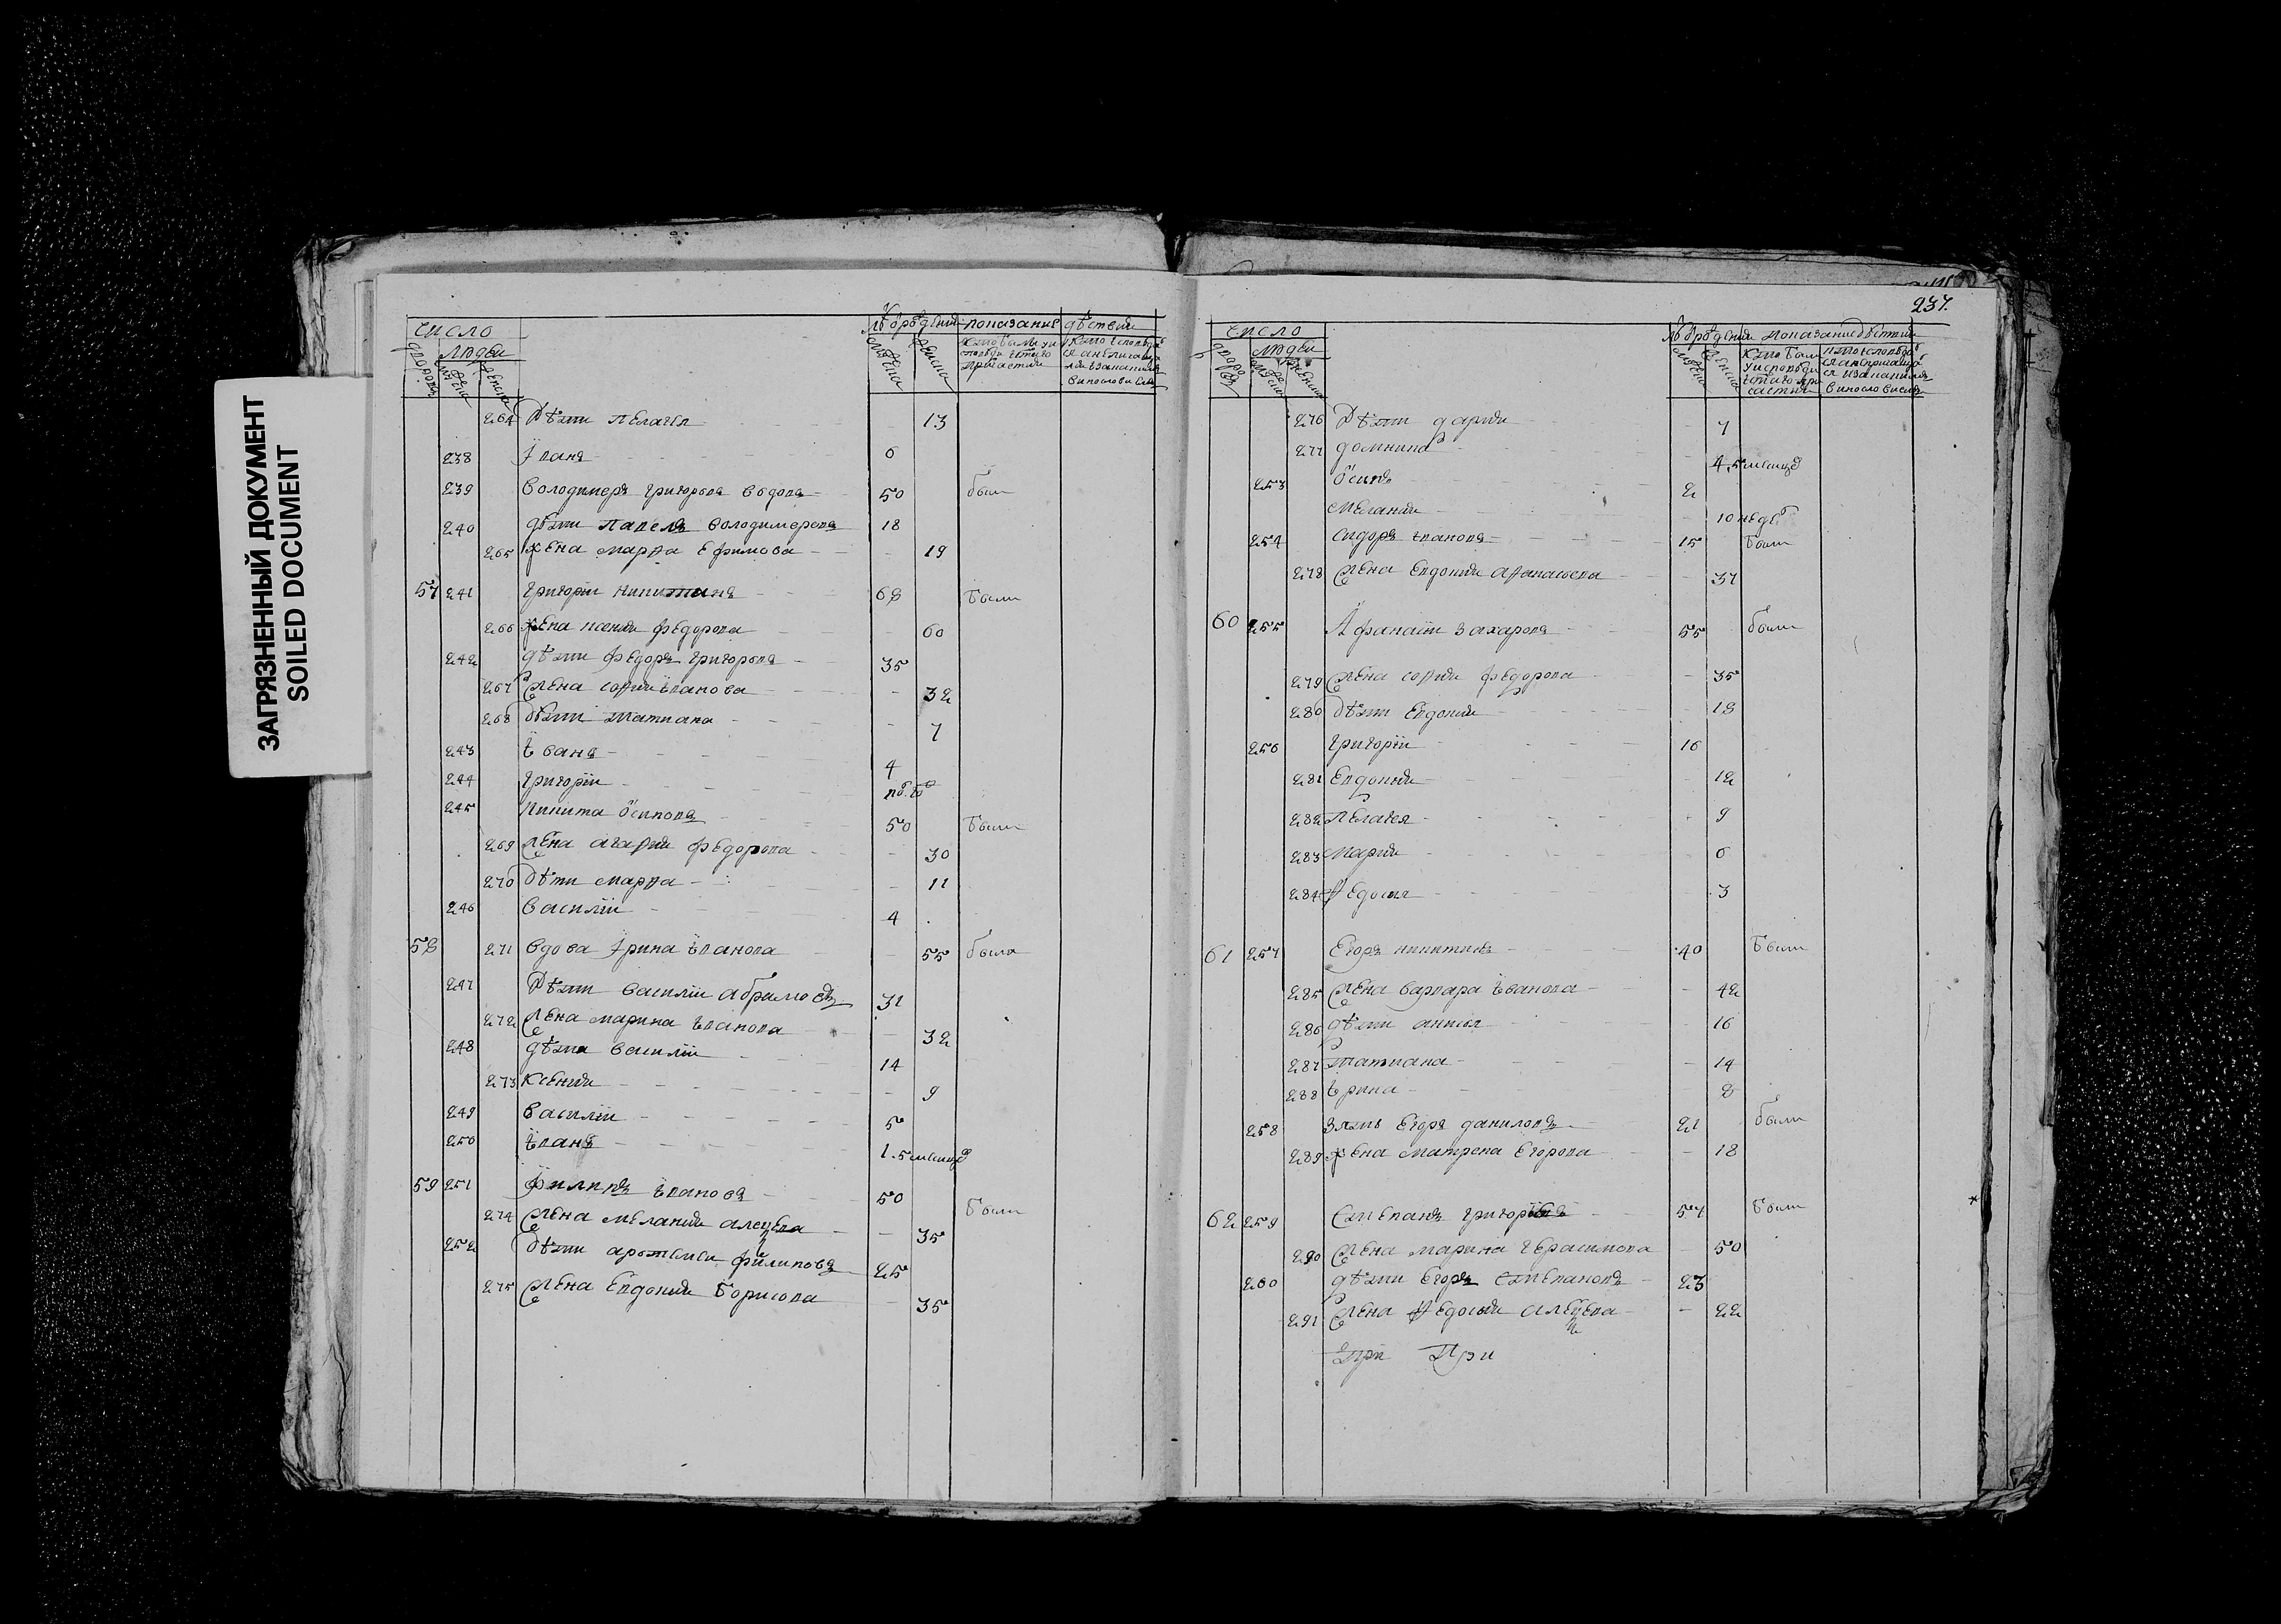 ЗАГРЯЗНЕННЫЙ ДОКУМЕНТ
SOILED DOCUMENT
число
людеи
264 Дѣти пелагея 13
238 Iванъ 6
239 володимеръ григорьевъ вдовъ 50 были
240 дѣти павелъ володимеровъ 18
265 жена марѳа ефимова 19
57 241 григорiи никитинъ 68 были
266 жена ксения федорова 60
242 дѣти федоръ григорьевъ 35
267 жена софия ивановa 32
268 дѣти татиана 7
243 Iванъ 4
244 григорiи
245 никита осиповъ 50 были
269 жена агафия федорова 30
270 дѣти марѳа 11
246 василiи 4
58 271 вдова Iрина iванова 55 была
247 Дѣти василiи абрамовъ 31
272 жена марина iванова 32
248 дѣти василiи 14
273 ксения 9
249 василiи 5
250 iванъ 1.5 месяц
59 251 филипъ iвановъ 50 были
274 жена мелания алеѯева 35
252 дѣти артемеи филиповъ 25
275 жена евдокия борисова 35
237.
число
людеи
276 Дѣти дария 7
277 домника 4.5 месяц
253 осипъ 2
мелания 10 недѣ
254 сидоръ iвановъ 15 были
278 жена евдокия аѳанасьева 37
60 255 Афанасiи захаровъ 55 были
279 жена софия федорова 35
280 дѣти евдокия 18
256 григорiи 16
281 евдокия 12
282 пелагея 9
283 мария 6
284 ѳедосья 3
61 257 егоръ никитинъ 40 были
285 жена варвара iванова 42
286 дѣти анисья 16
287 татиана 14
288 iрина 8
258 зять егоръ даниловъ 21 были
289 жена матрена егорова 18
62 259 степанъ григорьевъ 57 были
290 жена марина герасимова 50
260 дѣти егоръ степановъ 23
291 жена ѳедосья алеѯева 22